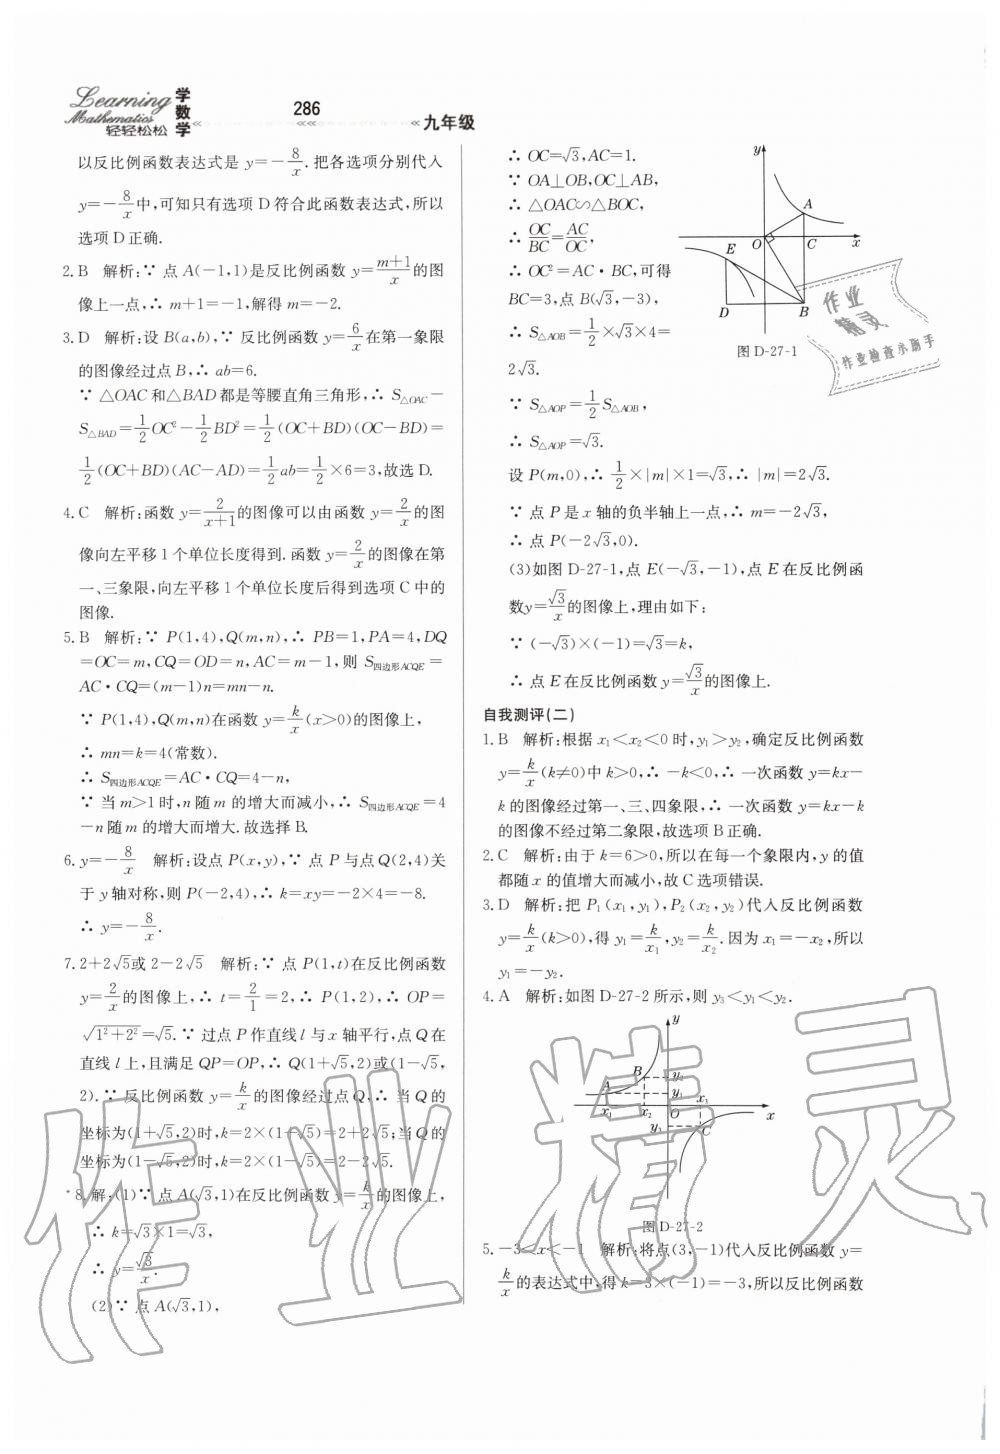 Learning
Mathematics
轻轻松松
学数学
286
九年级
以反比例函数表达式是 y=-8/x. 把各选项分别代入
y=-8/x中,可知只有选项 D 符合此函数表达式,所以
选项 D 正确.
2. B 解析:∵ 点 A(-1,1)是反比例函数 y=(m+1)/x的图
像上一点,∴ m+1=-1,解得 m=-2.
3. D 解析:设 B(a,b),∵ 反比例函数 y=6/x在第一象限
的图像经过点 B,∴ ab=6.
∵ △OAC 和△BAD 都是等腰直角三角形,∴ S△OAC-
S△BAD=1/2OC²-1/2BD²=1/2(OC+BD)(OC-BD)=
1/2(OC+BD)(AC-AD)=1/2ab=1/2×6=3,故选 D.
4. C 解析:函数 y=2/(x+1)的图像可以由函数 y=2/x的图
像向左平移 1 个单位长度得到. 函数 y=2/x的图像在第
一、三象限,向左平移 1 个单位长度后得到选项 C 中的
图像.
5. B 解析:∵ P(1,4),Q(m,n),∴ PB=1,PA=4,DQ
=OC=m,CQ=OD=n,AC=m-1,则 S四边形ACQE=
AC·CQ=(m-1)n=mn-n.
∵ P(1,4),Q(m,n)在函数 y=k/x(x>0)的图像上,
∴ mn=k=4(常数).
∴ S四边形ACQE=AC·CQ=4-n,
∵ 当 m>1 时,n 随 m 的增大而减小,∴ S四边形ACQE=4
-n 随 m 的增大而增大. 故选择 B.
6. y=-8/x 解析:设点 P(x,y),∵ 点 P 与点 Q(2,4)关
于 y 轴对称,则 P(-2,4),∴ k=xy=-2×4=-8.
∴ y=-8/x.
7. 2+2√5或 2-2√5 解析:∵ 点 P(1,t)在反比例函数
y=2/x的图像上,∴ t=2/1=2,∴ P(1,2),∴ OP=
√(1²+2²)=√5. ∵ 过点 P 作直线 l 与 x 轴平行,点 Q 在
直线 l 上,且满足 QP=OP,∴ Q(1+√5,2)或(1-√5,
2). ∵ 反比例函数 y=k/x的图像经过点 Q,∴ 当 Q 的
坐标为(1+√5,2)时,k=2×(1+√5)=2+2√5;当 Q 的
坐标为(1-√5,2)时,k=2×(1-√5)=2-2√5.
*8. 解:(1)∵ 点 A(√3,1)在反比例函数 y=k/x的图像上,
∴ k=√3×1=√3,
∴ y=√3/x.
(2)∵ 点 A(√3,1),
∴ OC=√3,AC=1.
∵ OA⊥OB,OC⊥AB,
∴ △OAC∽△BOC,
∴ OC/BC=AC/OC,
∴ OC²=AC·BC,可得
BC=3,点 B(√3,-3),
∴ S△AOB=1/2×√3×4=
2√3.
∵ S△AOP=1/2S△AOB,
∴ S△AOP=√3.
y
A
E
O
C
x
D
B
图 D-27-1
作业
精灵
作业检查小助手
设 P(m,0),∴ 1/2×|m|×1=√3,∴ |m|=2√3.
∵ 点 P 是 x 轴的负半轴上一点,∴ m=-2√3,
∴ 点 P(-2√3,0).
(3)如图 D-27-1,点 E(-√3,-1),点 E 在反比例函
数y=√3/x的图像上,理由如下:
∵ (-√3)×(-1)=√3=k,
∴ 点 E 在反比例函数 y=√3/x的图像上.
自我测评(二)
1. B 解析:根据 x₁<x₂<0 时,y₁>y₂,确定反比例函数
y=k/x(k≠0)中 k>0,∴ -k<0,∴ 一次函数 y=kx-
k 的图像经过第一、三、四象限,∴ 一次函数 y=kx-k
的图像不经过第二象限,故选项 B 正确.
2. C 解析:由于 k=6>0,所以在每一个象限内,y 的值
都随 x 的值增大而减小,故 C 选项错误.
3. D 解析:把 P₁(x₁,y₁),P₂(x₂,y₂)代入反比例函数
y=k/x(k>0),得 y₁=k/x₁,y₂=k/x₂. 因为 x₁=-x₂,所以
y₁=-y₂.
4. A 解析:如图 D-27-2 所示,则 y₃<y₁<y₂.
y
B
y₂
A
y₁
x₃
x₁
x₂
O
x
y₃
C
图 D-27-2
5. -3<x<-1 解析:将点(3,-1)代入反比例函数 y=
k/x的表达式中,得 k=3×(-1)=-3,所以反比例函数
作业精灵